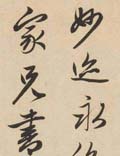 妙迹永
家兄書